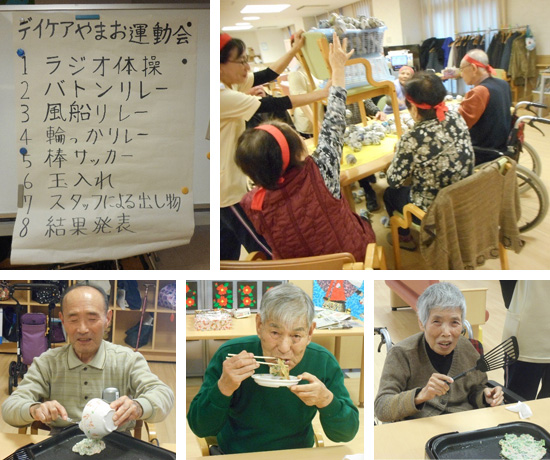 デイケアやまお運動会
1 ラジオ体操
2 バトンリレー
3 風船リレー
4 輪っかリレー
5 棒サッカー
6 玉入れ
7 スタッフによる出し物
8 結果発表